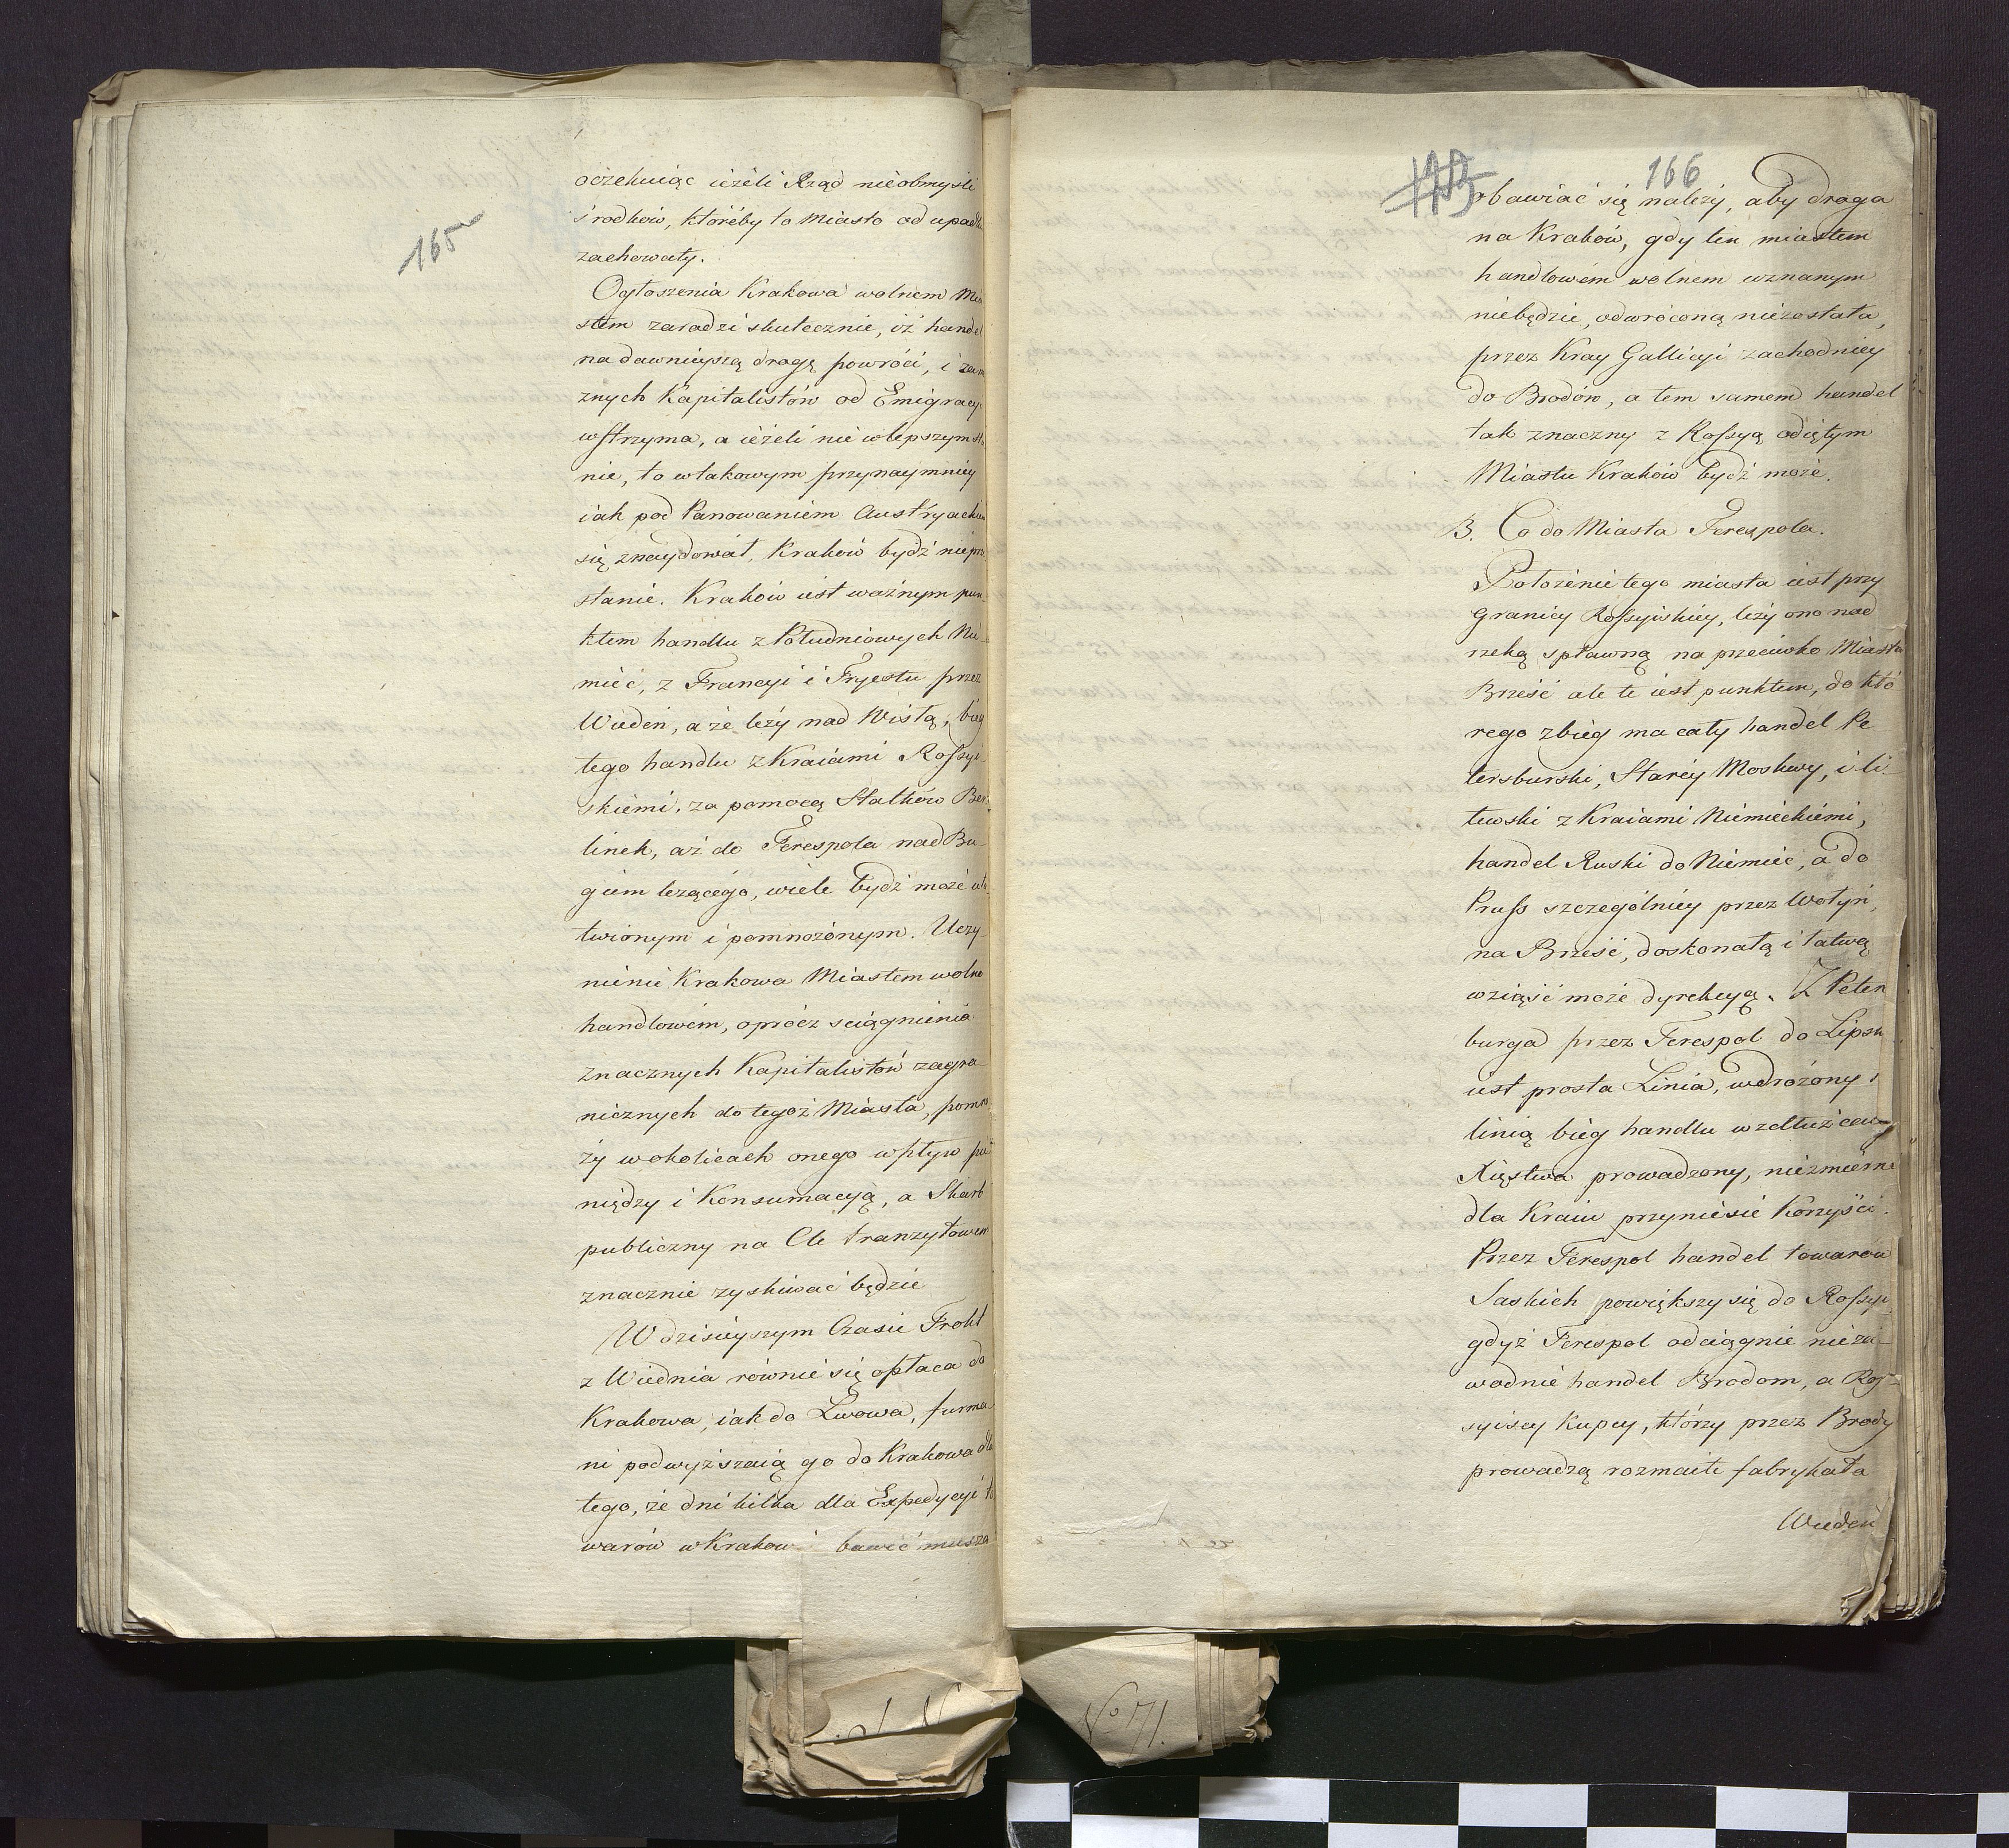 165
oczekuiąc ieżeli Rząd nieobmyśli
środków, któréby to Miasto od upadku
zachowały.
Ogłoszenia Krakowa wolnem Mia
stem zaradzi skutecznie, iż handel
na dawnieyszą drogę powróci, i zam
znych Kapitalistów od Emigracyi
wstrzyma, a ieżeli nie w lepszym sta
nie, to w takowym przynaymniey
iak pod Panowaniem Austryackim
się znaydował, Kraków bydź nieprze
stanie. Kraków iest ważnym pun-
ktem handlu z Południowych Nie-
miéc, z Francyi i Tryestu przez
Wiedeń, a że leży nad Wisłą, bieg
tego handlu z Kraiami Rossyi-
skiémi, za pomocą Statków Ber-
linek, aż do Terespola nad Bu-
giem lezącego, wiele bydź może uła
twionym i pomnożonym. Uczy-
nienie Krakowa Miastem wolno
handlowém, oprócz sciągnienia
znacznych Kapitalistów zagra-
nicznych do tegoż Miasta, pomno
ży w okolicach onego wpływ pie
niędzy i Konsumacyą, a Skarb
publiczny na Cle tranzytowem
znacznie zyskiwać będzie
W dzisieyszym Czasie Frokt
z Wiednia równie się opłaca do
Krakowa, iak do Lwowa, furma
ni podwyższaią go do Krakowa dla
tego, że dni kilka dla Expedycyi to
warów w Krakow bawić muszą
166
obawiać się należy, aby droga
na Kraków, gdy ten miastem
handlowém wolnem uznanym
niebędzie, odwróconą niezostała,
przez Kray Gallicyi zachodniey
do Brodów, a tem samem handel
tak znaczny z Rossyą odiętym
Miastu Kraków bydź może.
B. Co do Miasta Terespola.
Położenie tego miasta iest przy
granicy Rossyiskiey, leży ono nad
rzeką spławną na przeciwko Miasta
Brześć ale te iest punktem, do któ
rego zbieg ma cały handel Pe
tersburski, Staréy Moskwy, i li-
tewski z Kraiami Niémieckiémi,
handel Ruski do Niémiec, a do
Pruss szczególniéy przez Wołyń,
na Brześć, doskonałą i łatwą
wziąść może dyrekcyą. Z Peters
burga przez Terespol do Lipsk
iest prosta Linia, wdrożony
linią bieg handlu wzdłuż całego
Xięstwa prowadzony, niezmierne
dla Kraiu przyniésie Korzyści.
Przez Terespol handel towarów
Saskich powiększy się do Rossyi,
gdyż Terespol odciągnie nieza-
wodnie handel Brodom, a Ros-
syiscy Kupcy, którzy przez Brody
prowadzą rozmaite fabrykata
Wiedeń
No 71.